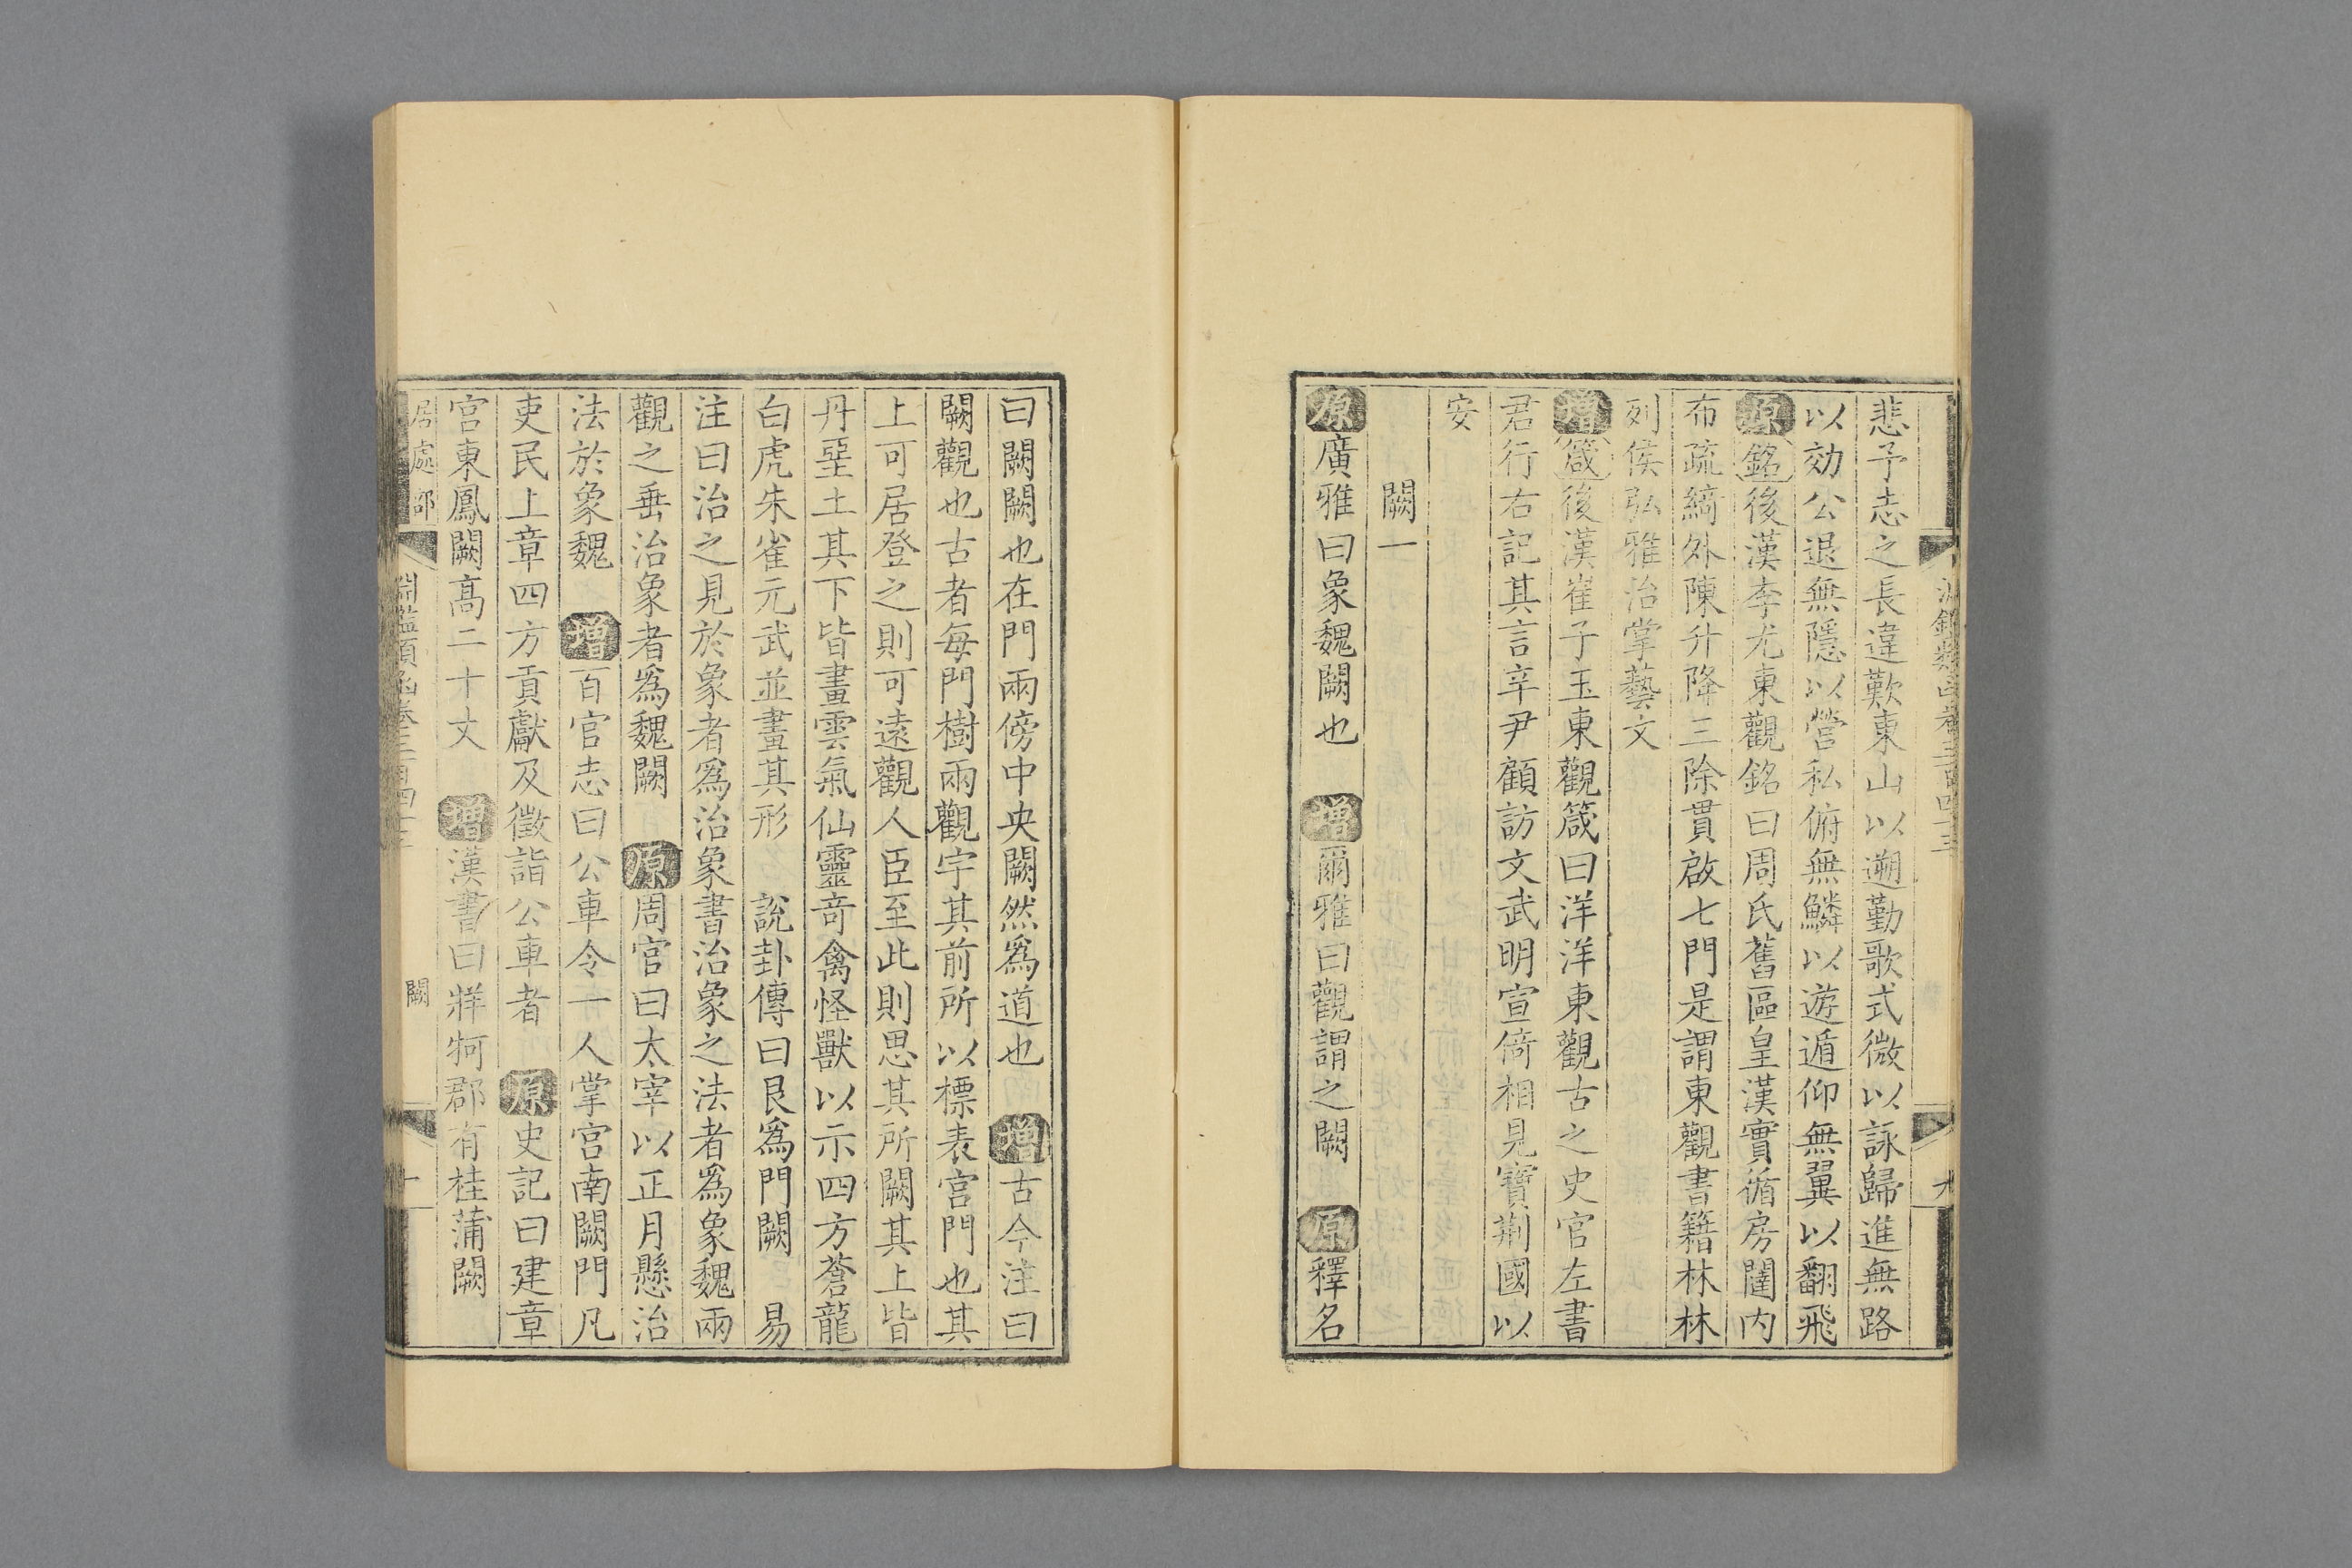 悲予志之長違歎東山以遡勤歌式微以詠歸進無路
以効公退無隱以營私俯無鱗以遊遁仰無翼以翻飛
原銘後漢李尤東觀銘曰周氏舊區皇漢實循房闥內
布疏綺外陳升降三除貫啟七門是謂東觀書籍林林
列侯弘雅治掌藝文
增箴後漢崔子玉東觀箴曰洋洋東觀古之史官左書
君行右記其言辛尹顧訪文武明宣倚相見寶荆國以
安
闕一
原廣雅曰象魏闕也 增爾雅曰觀謂之闕 原釋名
曰闕闕也在門兩傍中央闕然爲道也 增古今注曰
闕觀也古者每門樹兩觀宇其前所以標表宮門也其
上可居登之則可遠觀人臣至此則思其所闕其上皆
丹堊土其下皆畫雲氣仙靈竒禽怪獸以示四方蒼龍
白虎朱雀元武並畫其形 說卦傳曰艮爲門闕 易
注曰治之見於象者爲治象書治象之法者爲象魏兩
觀之垂治象者爲魏闕 原周官曰太宰以正月懸治
法於象魏 增百官志曰公車令一人掌宮南闕門凡
吏民上章四方貢獻及徵詣公車者 原史記曰建章
宮東鳳闕高二十丈 增漢書曰牂牁郡有桂蒲闕
居處部 淵鑑類函卷三百四十三 闕 十